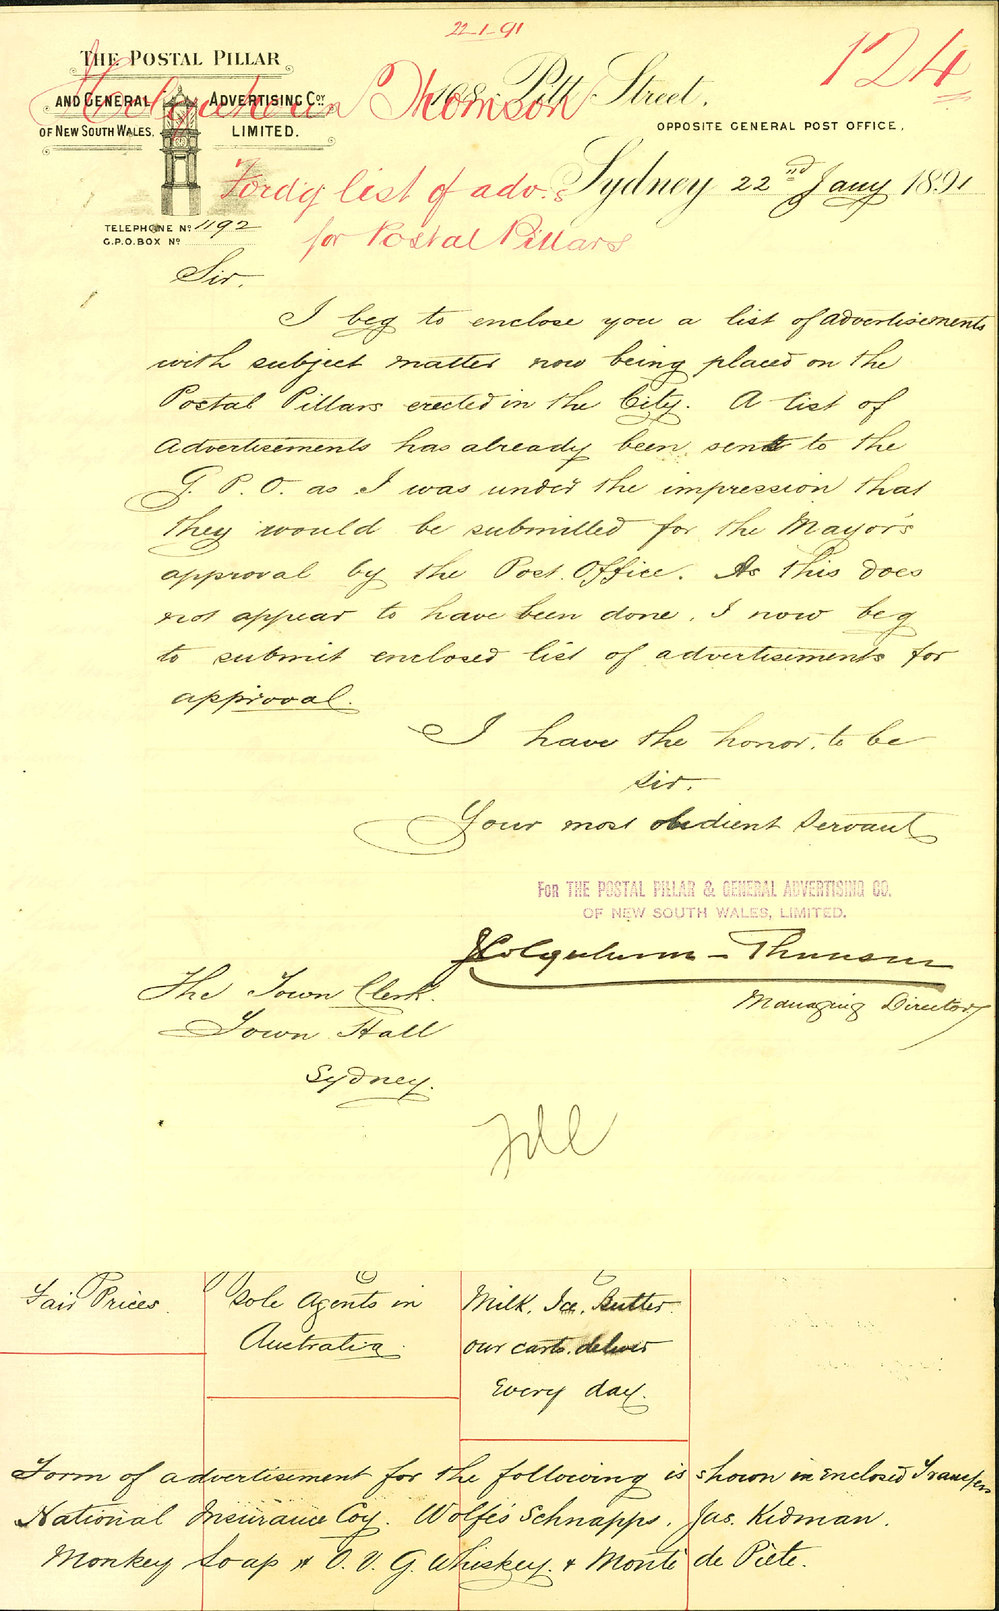 22-1-91
124
THE POSTAL PILLAR
AND GENERAL ADVERTISING COY
OF NEW SOUTH WALES, LIMITED.
TELEPHONE No 1192
G.P.O. BOX No
168 Pitt Street.
OPPOSITE GENERAL POST OFFICE.
Colquhoun Thomson
Fordg list of adv.s
for Postal Pillars
Sydney 22nd Jany 1891
Sir.
I beg to enclose you a list of advertisements
with subject matter now being placed on the
Postal Pillars erected in the City. A list of
advertisements has already been sent to the
G. P. O. as I was under the impression that
they would be submitted for the Mayor's
approval by the Post Office. As this does
not appear to have been done. I now beg
to submit enclosed list of advertisements for
approval.
I have the honor. to be
Sir.
Your most obedient Servant
For THE POSTAL PILLAR & GENERAL ADVERTISING CO.
OF NEW SOUTH WALES, LIMITED.
Colquhoun - Thomson
Managing Director
The Town Clerk.
Town Hall
Sydney.
Fair Prices.
Sole Agents in
Australia.
Milk, Ice, Butter.
our carts. deliver
Every day.
Form of advertisement for the following is shown in enclosed Transfers
National Insurance Coy. Wolfe's Schnapps. Jas. Kidman.
Monkey Soap & O. V. G. Whiskey. & Monte de Piete.